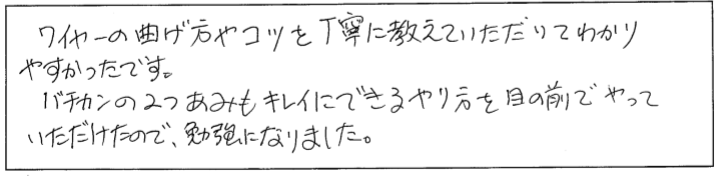 ワイヤーの曲げ方やコツを丁寧に教えていただいてわかり
やすかったです。
バチカンの2つあみもキレイにできるやり方を目の前でやって
いただけたので、勉強になりました。